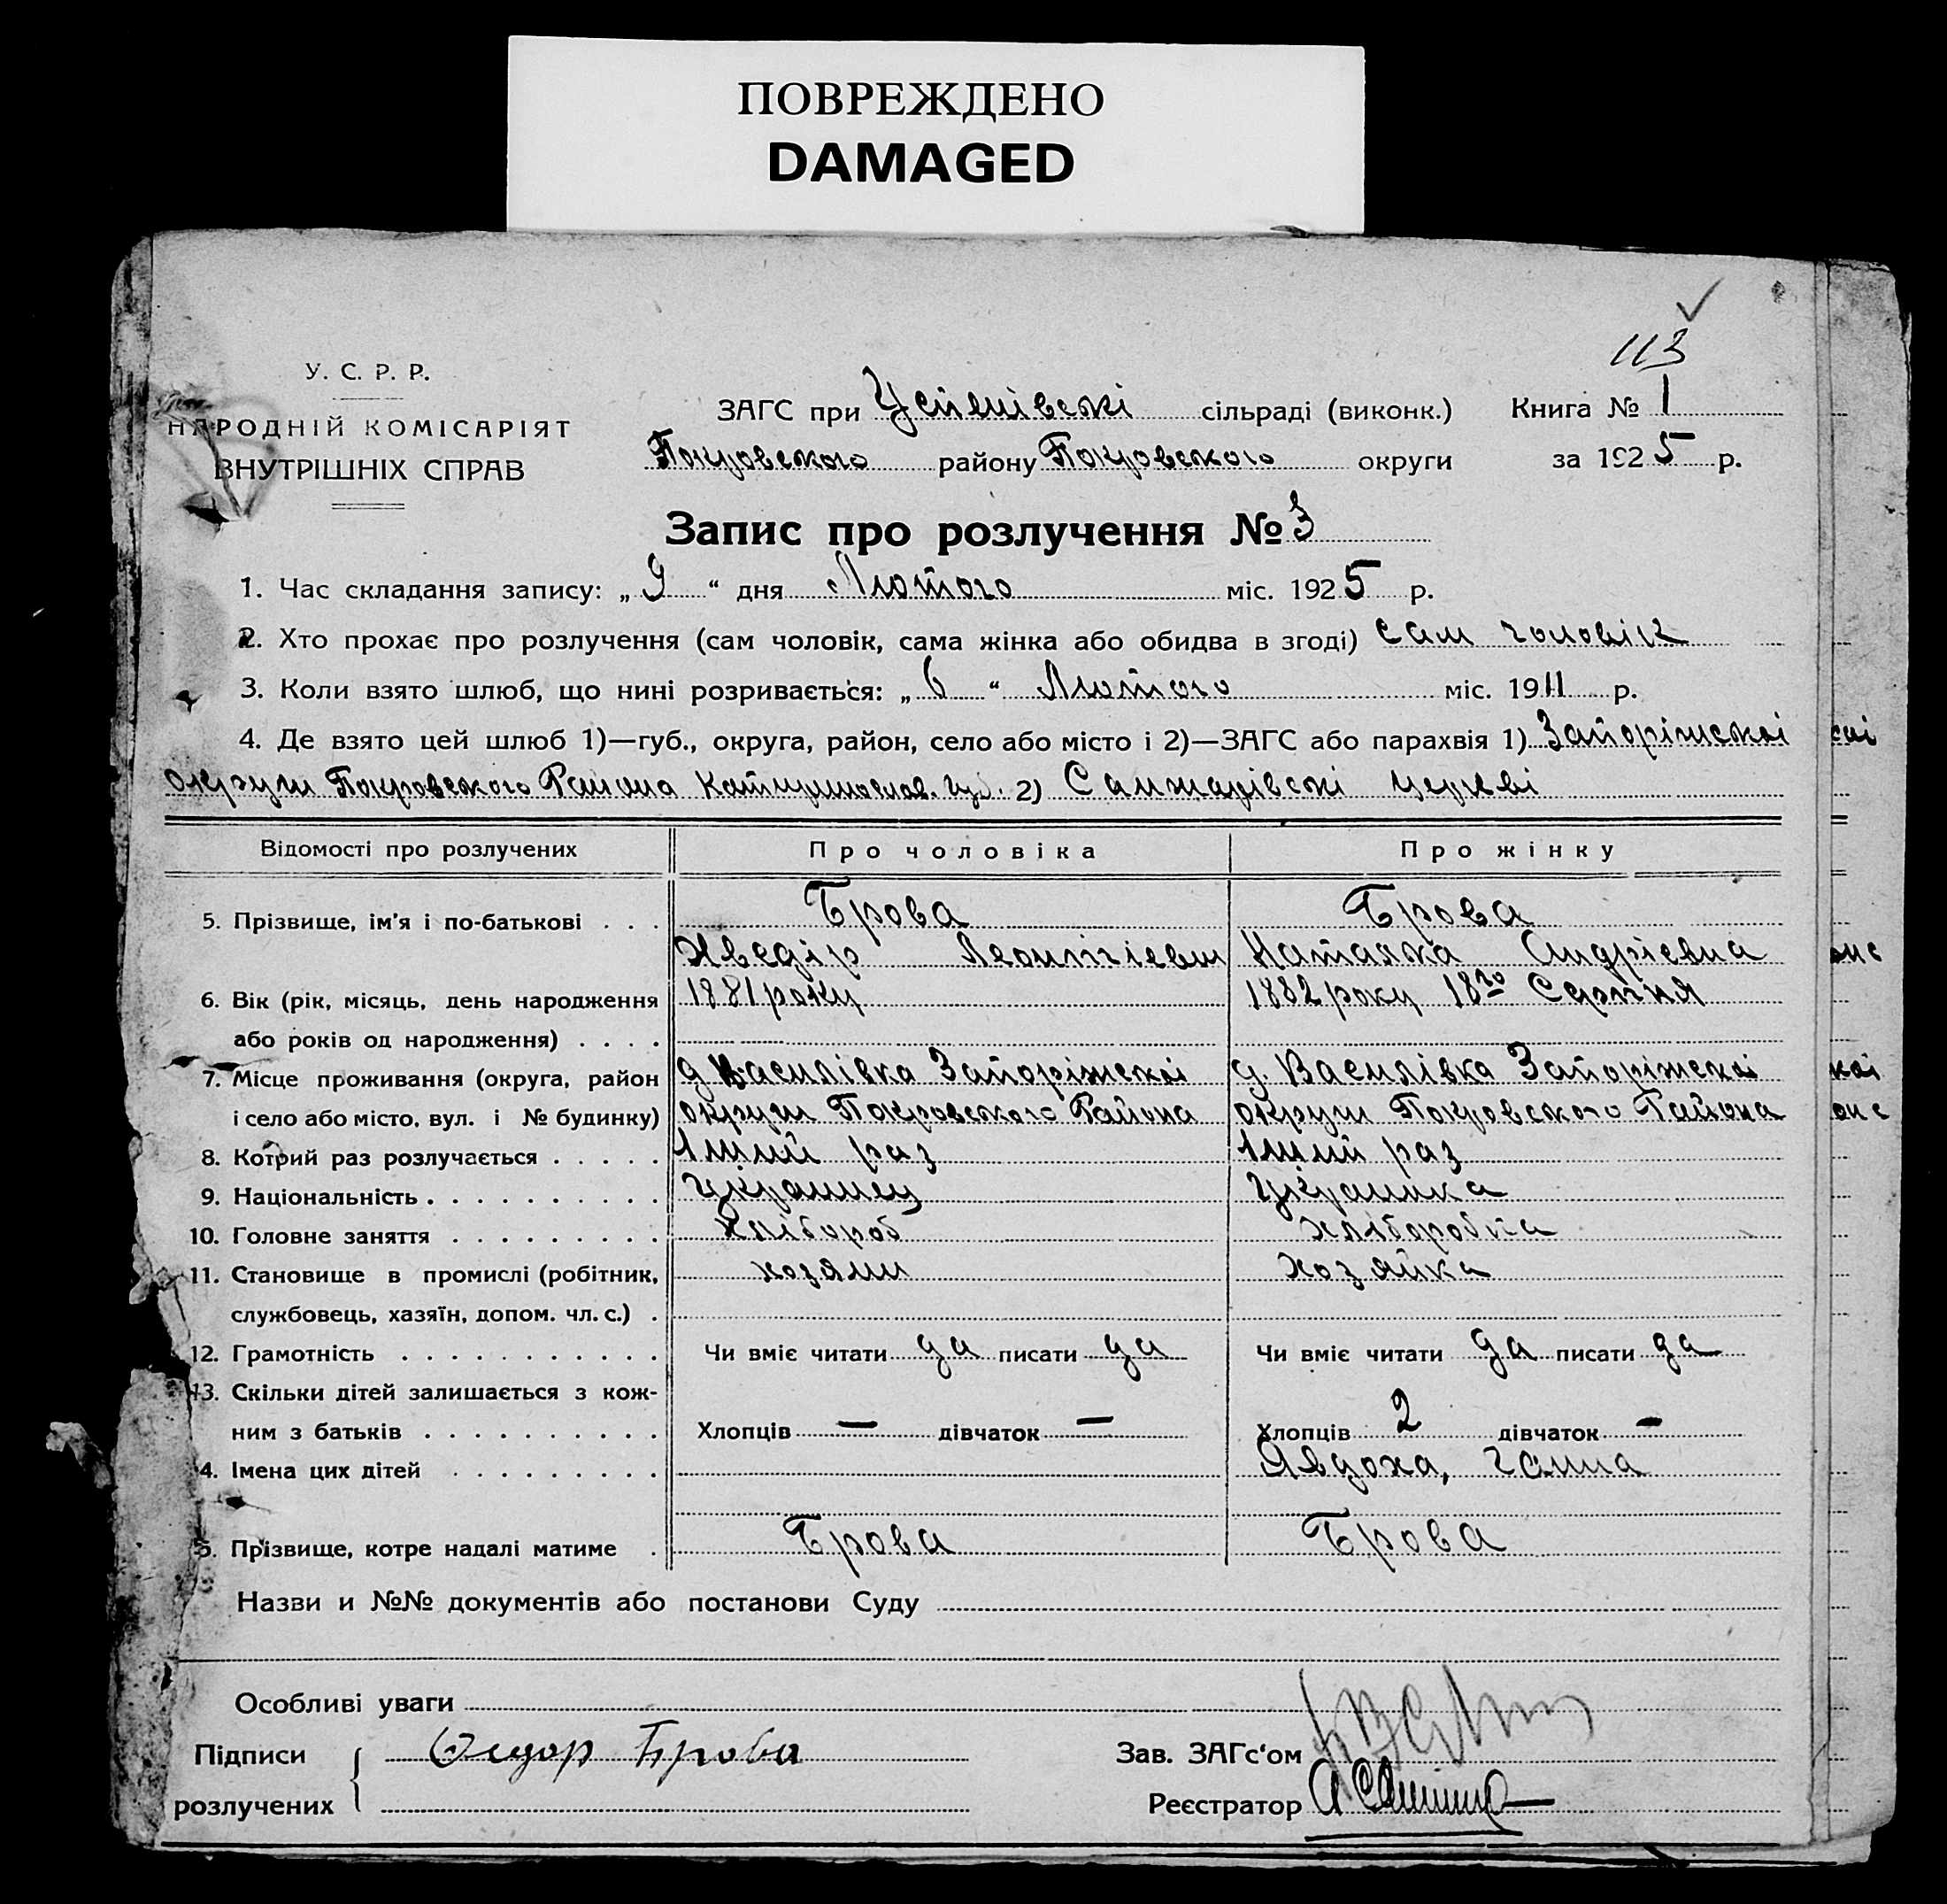 ПОВРЕЖДЕНО
DAMAGED
113
У. С. Р. Р.
НАРОДНІЙ КОМІСАРІЯТ
ВНУТРІШНІХ СПРАВ
ЗАГС при Успенівські сільраді (виконк.) Книга № 1
Покровського району Покровського округи за 1925 р.
Запис про розлучення № 3
1. Час складання запису: „ 9 “ дня Лютого міс. 1925 р.
2. Хто прохає про розлучення (сам чоловік, сама жінка або обидва в згоді) сам чоловік
3. Коли взято шлюб, що нині розривається: „ 6 “ Лютого міс. 1911 р.
4. Де взято цей шлюб 1)—губ., округа, район, село або місто і 2)—ЗАГС або парахвія 1) Запоріжскоі
округи Покровського Района Катириносла. губ. 2) Санжарівскі церкві
Відомості про розлучених Про чоловіка Про жінку
5. Прізвище, ім'я і по-батькові . . . Брова Брова
Хведір Наталка Андрієвна
6. Вік (рік, місяць, день народження 1881 року 1882 року 18го Серпня
або років од народження) . . . .
7. Місце проживання (округа, район д Василівка Запоріжскоі д. Василівка Запоріжскоі
і село або місто, вул. і № будинку) округи Покровського Района округи Покровського Района
8. Котрий раз розлучається . . . . . раз раз
9. Національність . . . . . . . . . . Українец Українка
10. Головне заняття . . . . . . . . . хлібороб хліборобка
11. Становище в промислі (робітник, хозяин хозяйка
службовець, хазяїн, допом. чл. с.) .
12. Грамотність . . . . . . . . . . . Чи вміє читати да писати да Чи вміє читати да писати да
13. Скільки дітей залишається з кож-
ним з батьків . . . . . . . . . . Хлопців — дівчаток — Хлопців 2 дівчаток -
4. Імена цих дітей . . . . . . . . . Явдоха, Ганна
5. Прізвище, котре надалі матиме . Брова Брова
Назви и №№ документів або постанови Суду
Особливі уваги
Підписи Федор Брова Зав. ЗАГс‘ом
розлучених Реєстратор